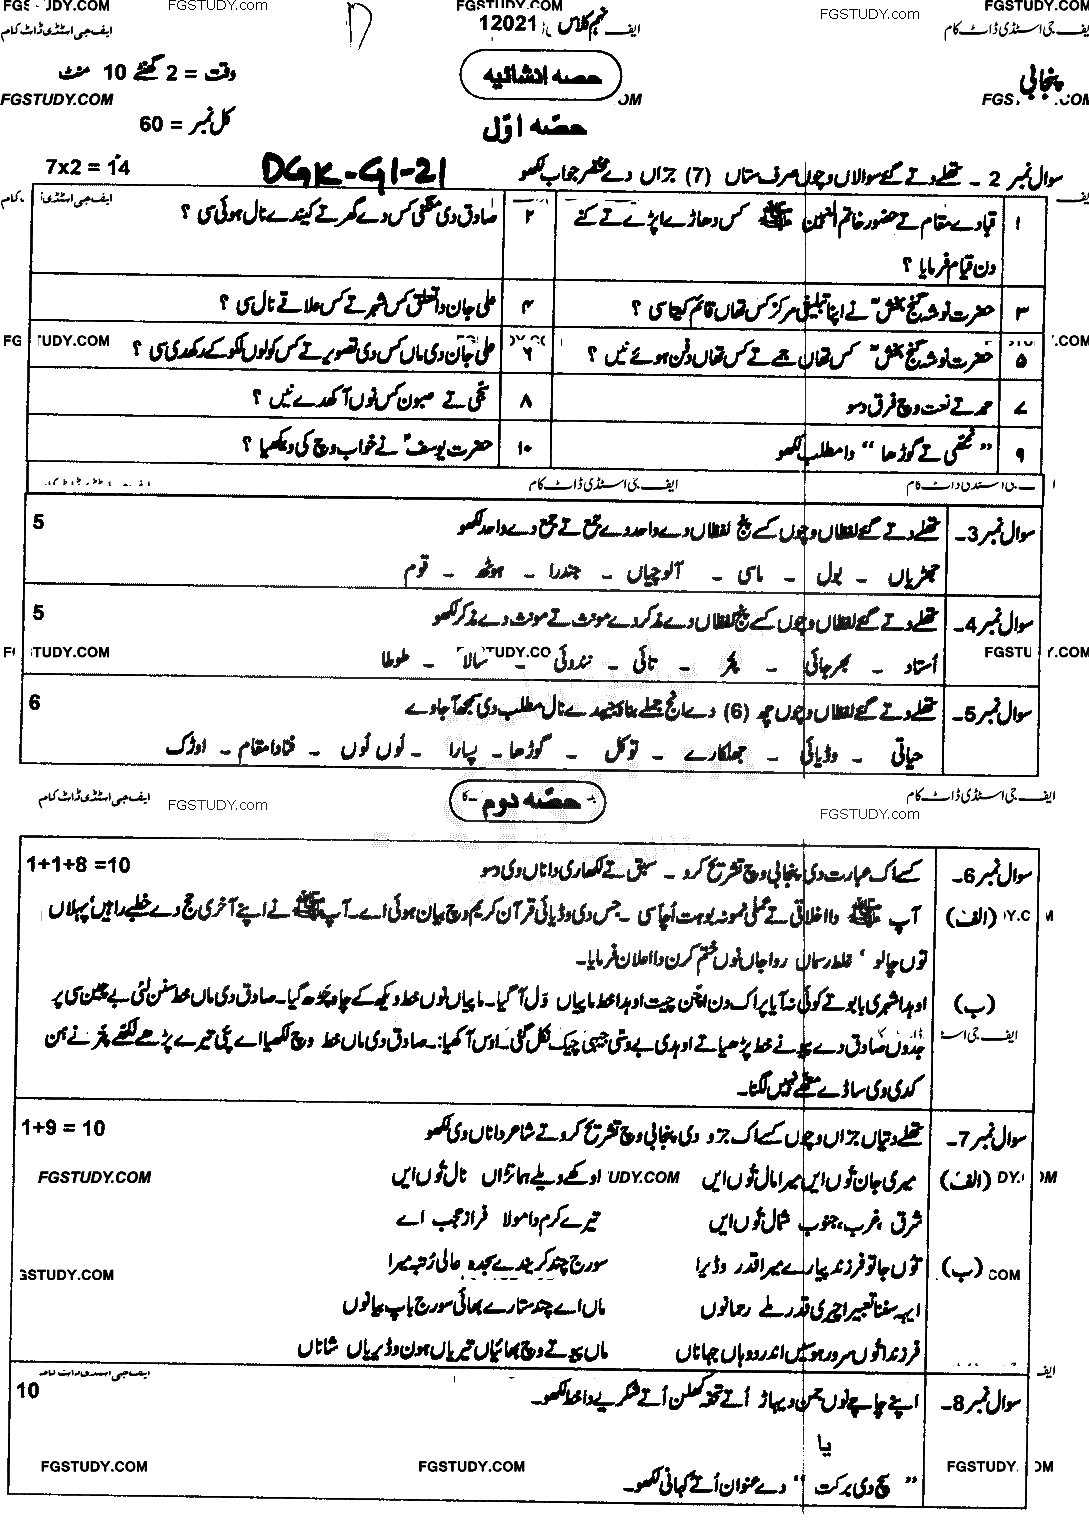 FGSTUDY.COM
12021 نہم کلاس
ایف جی اسٹڈی ڈاٹ کام
پنجابی
حصہ انشائیہ
وقت = 2 گھنٹے 10 منٹ
FGSTUDY.COM
حصّہ اوّل
کل نمبر = 60
DGK-G1-21
سوال نمبر 2 ۔ تھلے دتے گئے سوالاں وچوں صرف ستاں (7) جزاں دے مختصر جواب لکھو 7x2 = 14
۱ قباء دے مقام تے حضور خاتم النبیین ﷺ کس دھاڑے اپڑے تے کنے دن قیام فرمایا ؟
۲ صادق دی منگنی کس دے گھر تے کیہدے نال ہوئی سی ؟
۳ حضرت نوشہ گنج بخشؒ نے اپنا تبلیغی مرکز کس تھاں قائم کیتا سی ؟
۴ علی جان دا تعلق کس شہر تے کس علاقے نال سی ؟
۵ حضرت نوشہ گنج بخشؒ کس تھاں جمے تے کس تھاں دفن ہوئے نیں ؟
۶ علی جان دی ماں کس دی تصویر تے کس کولوں لکو کے رکھدی سی ؟
۷ حمد تے نعت وچ فرق دسو
۸ سچی تے صبون کس نوں آکھدے نیں ؟
۹ ”نتھی تے گوڑھا“ دا مطلب لکھو
۱۰ حضرت یوسفؑ نے خواب وچ کی ویکھیا ؟
ایف جی اسٹڈی ڈاٹ کام
سوال نمبر 3۔ تھلے دتے گئے لفظاں وچوں کسے پنج لفظاں دے واحد دے جمع تے جمع دے واحد لکھو 5
چھڑیاں ۔ بول ۔ ماسی ۔ آلوچیاں ۔ جندرا ۔ ہوٹھ ۔ قوم
سوال نمبر 4۔ تھلے دتے گئے لفظاں وچوں کسے پنج لفظاں دے مذکر دے مونث تے مونث دے مذکر لکھو 5
اُستاد ۔ بھرجائی ۔ پتر ۔ تائی ۔ نندوئی ۔ سالا ۔ طوطا
سوال نمبر 5۔ تھلے دتے گئے لفظاں وچوں چھ (6) دے انج جملے بناؤ جیہدے نال مطلب دی سمجھ آ جاوے 6
حیاتی ۔ وڈیائی ۔ جھلکارے ۔ توکل ۔ گوڑھا ۔ پسارا ۔ لُوں لُوں ۔ فنا دا مقام ۔ اوڑک
حصّہ دوم
ایف جی اسٹڈی ڈاٹ کام
FGSTUDY.com
سوال نمبر 6۔ کسے اک عبارت دی پنجابی وچ تشریح کرو ۔ سبق تے لکھاری دا ناں وی دسو 1+1+8 =10
(الف) آپ ﷺ دا اخلاق تے عملی نمونہ بوہت اُچا سی ۔ جس دی وڈیائی قرآن کریم وچ بیان ہوئی اے۔ آپ ﷺ نے اپنے آخری حج دے خطبے راہیں پہلاں
توں چالو ، غلط رسماں رواجاں نوں ختم کرن دا اعلان فرمایا۔
(ب) اوہدا شہری بابو تے کوئی نہ آیا پر اک دن اچن چیت اوہدا خط ماپیاں ول آ گیا۔ ماپیاں نوں خط ویکھ کے چاہ چڑھ گیا۔ صادق دی ماں خط سنن لئی بے چین سی پر
جدوں صادق دے پیو نے خط پڑھیا تے اوہدی بے وستی جیہی چیک نکل گئی۔ اوس آکھیا:۔ صادق دی ماں خط وچ لکھیا اے پئی تیرے پڑھے لکھے پتر نے ہن
کدی وی ساڈے متھے نہیں لگنا۔
سوال نمبر 7۔ تھلے دتیاں جزاں وچوں کسے اک جزو دی پنجابی وچ تشریح کرو تے شاعر دا ناں وی لکھو 1+9 = 10
(الف) میری جان توں ایں میرا مال توں ایں اوکھے ویلے ہاڑاں نال توں ایں
شرق ، غرب، جنوب شمال توں ایں تیرے کرم دا مولا فراز عجب اے
(ب) توں جا تو فرزند پیارے میرا قدر وڈیرا سورج چند کریندے سجدہ عالی رُتبہ میرا
ایہہ سفنا تعبیر اچیری قدر ملے رحمانوں ماں اے چند ستارے بھائی سورج باپ پچھانوں
فرزندا توں سرور ہوسیں اندر دوہاں جہاناں ماں پیو تے وچ بھائیاں تیریاں ہون وڈیریاں شاناں
سوال نمبر 8۔ اپنے چاچے نوں جمن دیہاڑ اُتے تحفہ گھلن اُتے شکریے دا خط لکھو۔ 10
یا
”سچ دی برکت“ دے عنوان اُتے کہانی لکھو۔
FGSTUDY.COM FGSTUDY.COM FGSTUDY.COM